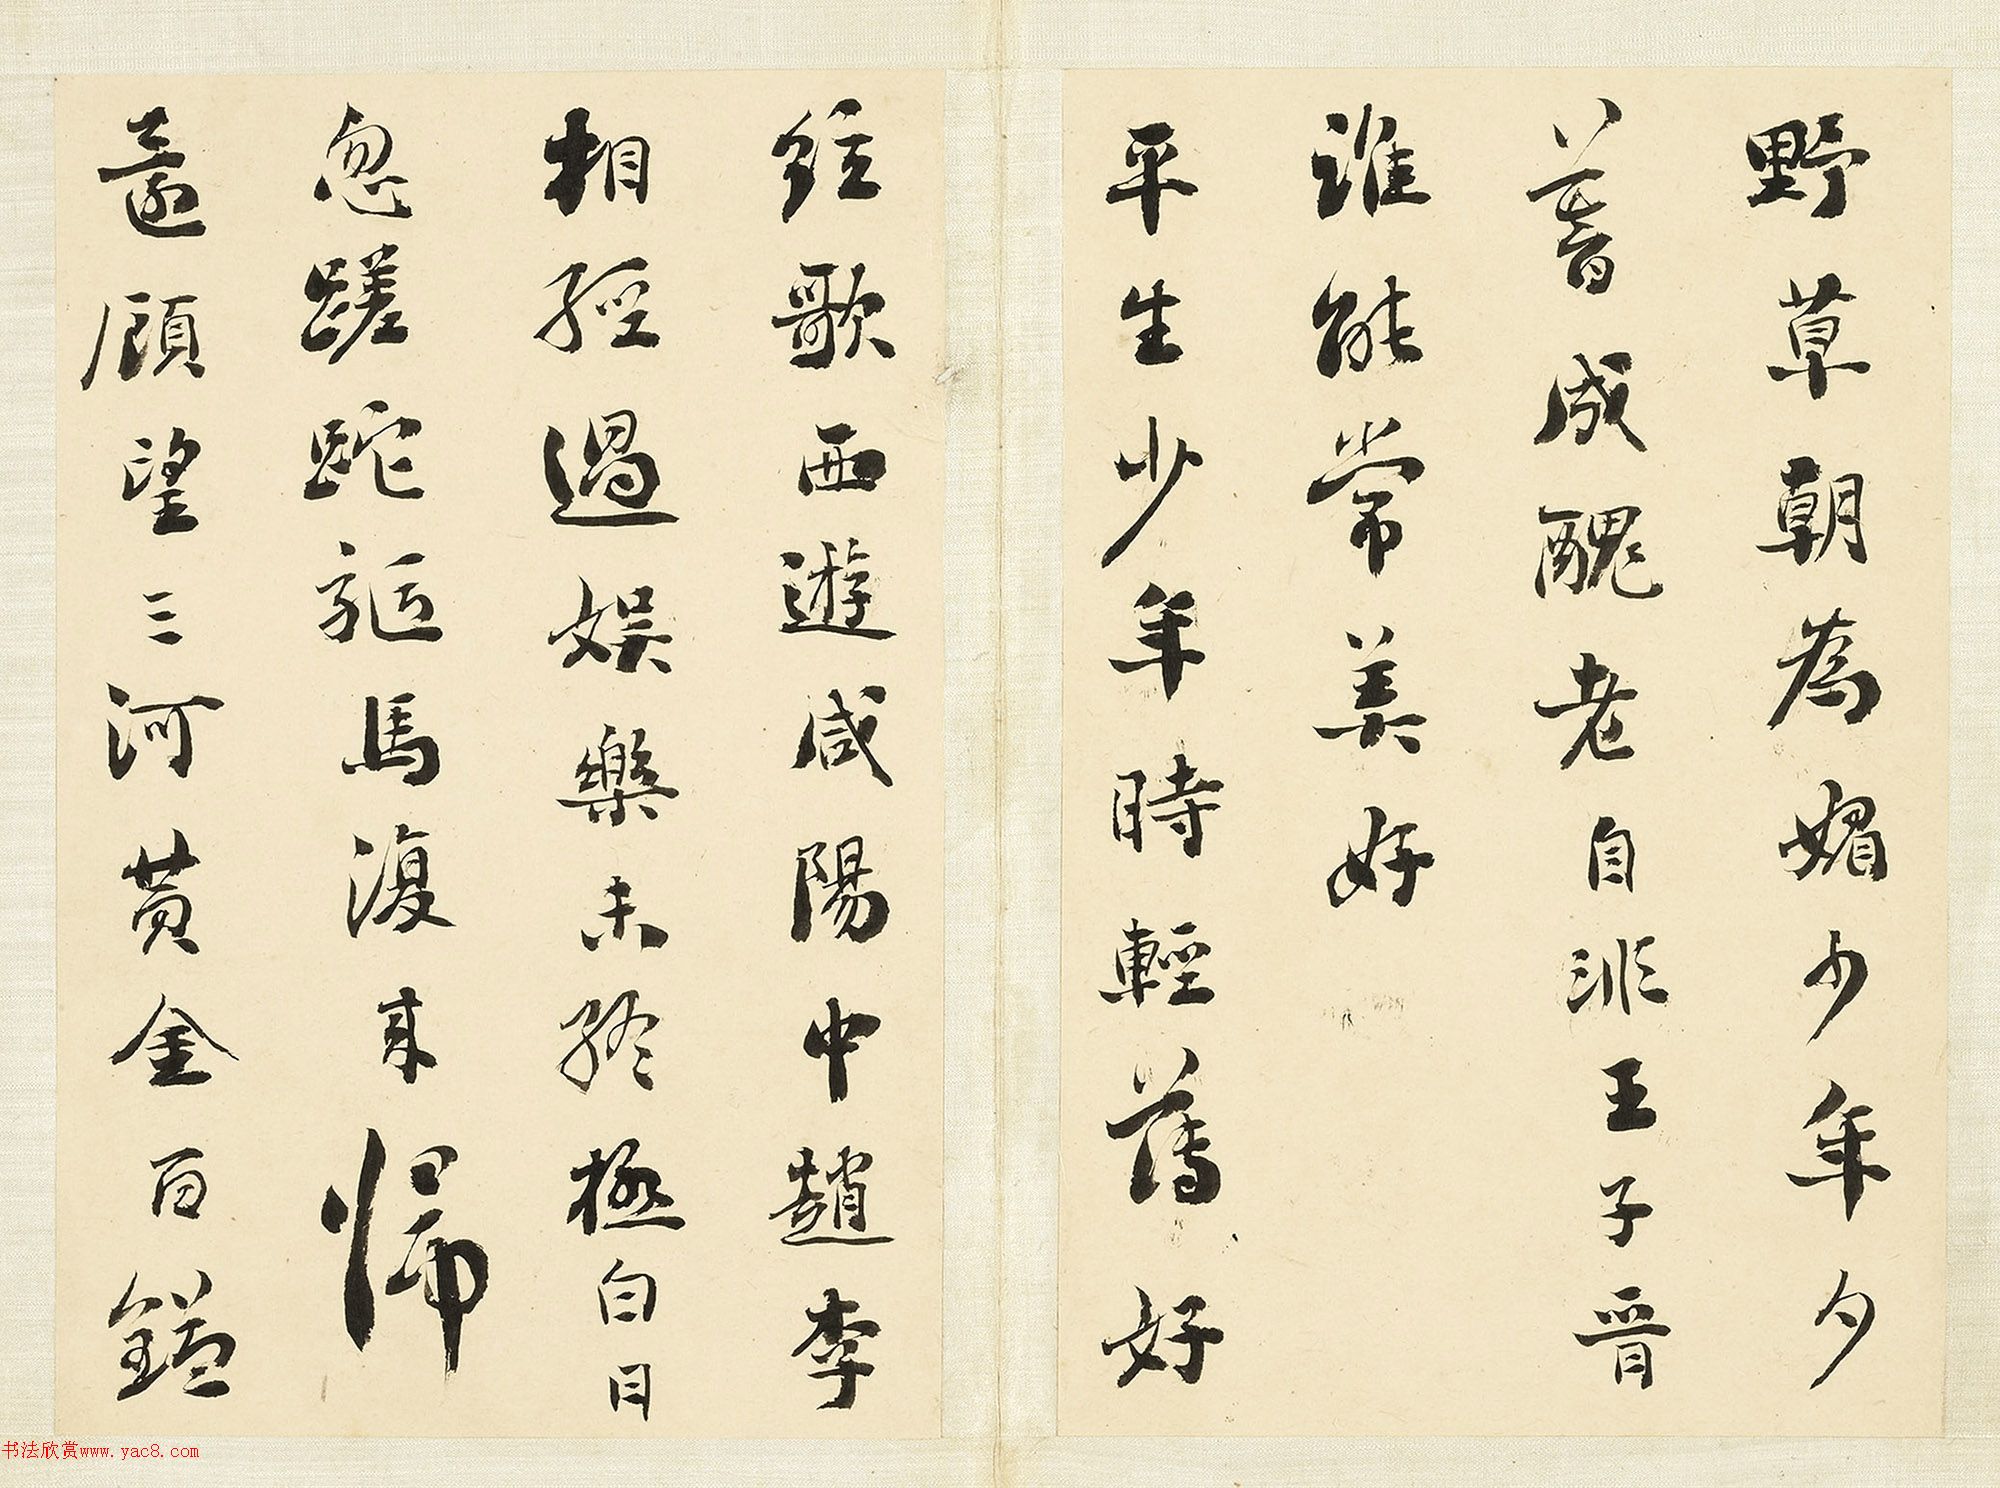 野草朝為媚少年夕
暮成醜老自非王子晉
誰能常美好
平生少年時輕薄好
絃歌西遊咸陽中趙李
相經過娛樂未終極白日
忽蹉跎驅馬復來歸
還顧望三河黃金百鎰
书法欣赏www.yac8.com